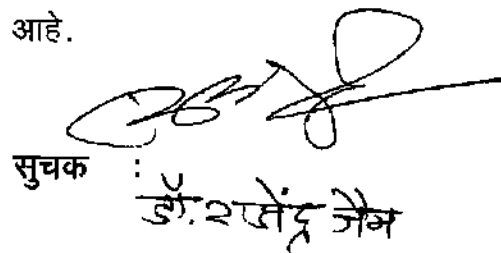 आहे.
सुचक :
डॉ. राजेंद्र जैन